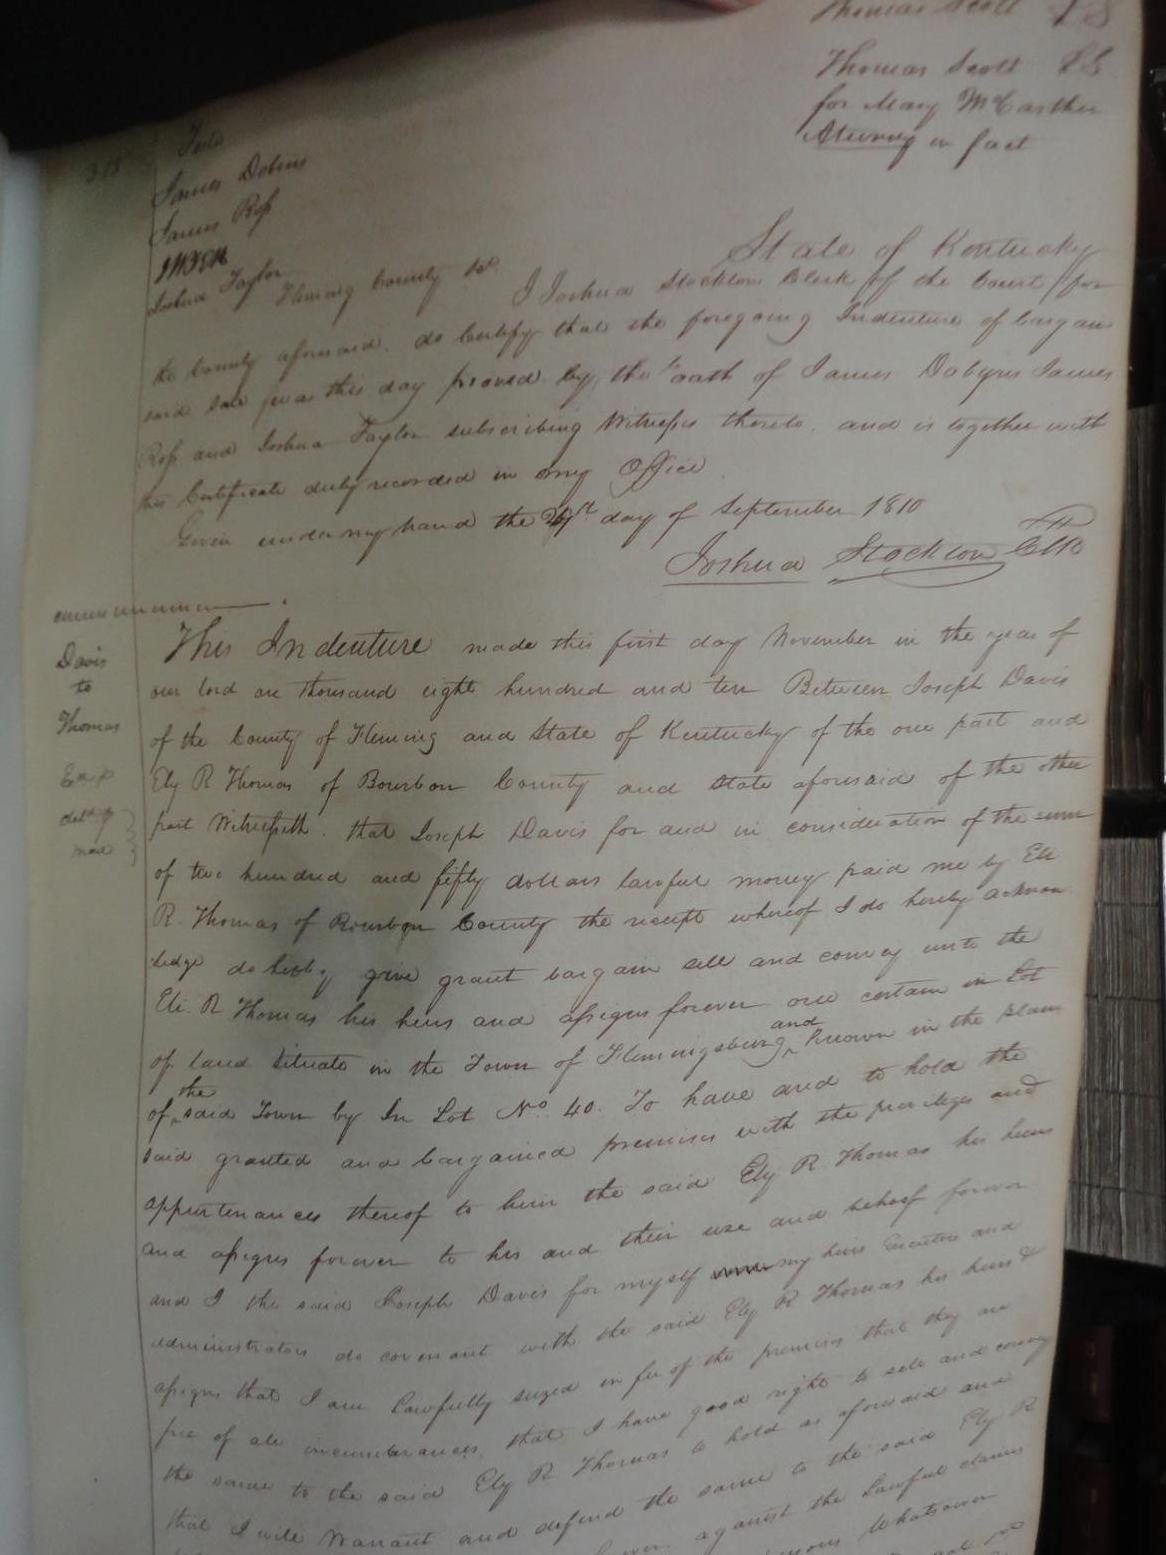 Thomas Scott
Thomas Scott LS
for Mary McCarther
Attorney in fact
Teste
James Dobins
James Ross
Joshua Taylor
State of Kentucky
Fleming County Sct
I Joshua Stockton Clerk of the Court for
the County aforesaid. do Certify that the foregoing Indenture of bargain
and sale was this day proved by the oath of James Dobyns James
Ross and Joshua Taylor subscribing Witnesses thereto. and is together with
this Certificate duly recorded in my Office
Given under my hand the day of September 1810
Joshua Stockton Clk
Davis
to
Thomas
This Indenture made this first day November in the year of
our lord one thousand eight hundred and ten Between Joseph Davis
of the County of Fleming and State of Kentucky of the one part and
Ely R Thomas of Bourbon County and State aforesaid of the other
part Witnesseth. that Joseph Davis for and in consideration of the sum
of two hundred and fifty dollars lawful money paid me by Eli
R. Thomas of Bourbon County the receipt whereof I do hereby acknow
ledge do hereby give grant bargain sell and convey unto the
Eli. R Thomas his heirs and assigns forever one certain in Lot
of land situate in the Town of Flemingsburg and known in the plann
of the said Town by In Lot No. 40. To have and to hold the
said granted and bargained premises with the privileges and
appurtenances thereof to him the said Ely R. Thomas his heirs
and assigns forever to his and their use and behoof forever
and I the said Joseph Davis for myself my heirs Executors and
administrators do covenant with the said Ely R Thomas his heirs &
assigns that I am lawfully seized in fee of the premises that they are
free of all incumbrances, that I have good right to sell and convey
the same to the said Ely R Thomas to hold as aforesaid and
that I will Warrant and defend the same to the said Ely R
against the lawful claims
Whatsoever